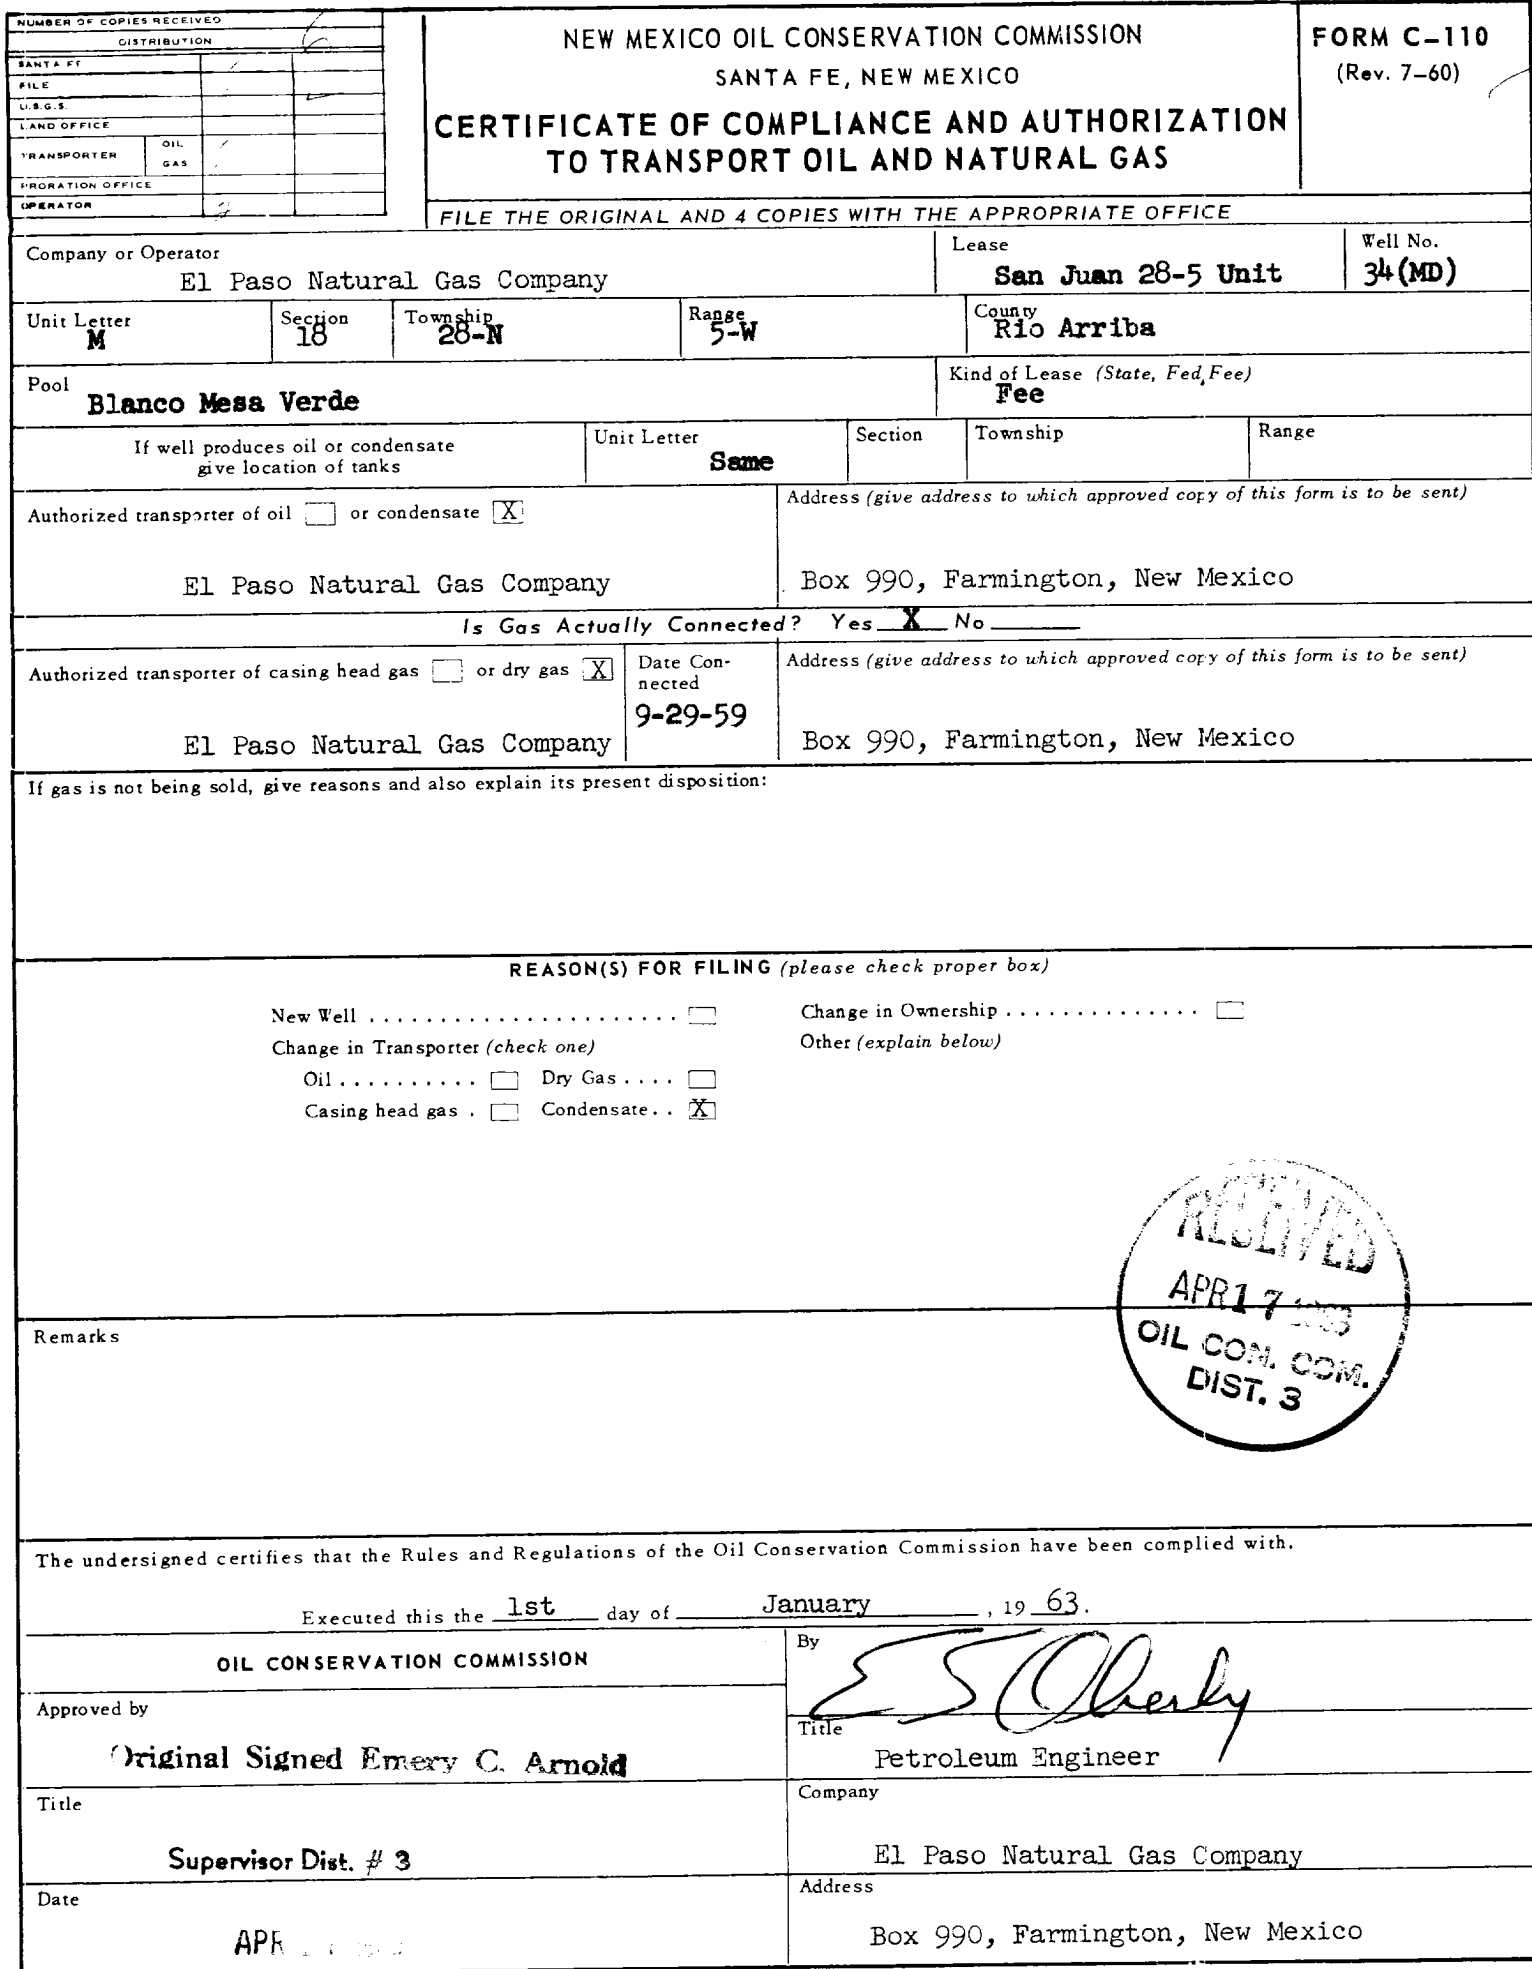 NUMBER OF COPIES RECEIVED
DISTRIBUTION
SANTA FE
FILE
U.S.G.S.
LAND OFFICE
TRANSPORTER OIL
GAS
PRORATION OFFICE
OPERATOR
NEW MEXICO OIL CONSERVATION COMMISSION
SANTA FE, NEW MEXICO
CERTIFICATE OF COMPLIANCE AND AUTHORIZATION
TO TRANSPORT OIL AND NATURAL GAS
FILE THE ORIGINAL AND 4 COPIES WITH THE APPROPRIATE OFFICE
FORM C-110
(Rev. 7-60)
Company or Operator
El Paso Natural Gas Company
Lease
San Juan 28-5 Unit
Well No.
34(MD)
Unit Letter
M
Section
18
Township
28-N
Range
5-W
County
Rio Arriba
Pool
Blanco Mesa Verde
Kind of Lease (State, Fed, Fee)
Fee
If well produces oil or condensate
give location of tanks
Unit Letter
Same
Section
Township
Range
Authorized transporter of oil or condensate X
El Paso Natural Gas Company
Address (give address to which approved copy of this form is to be sent)
Box 990, Farmington, New Mexico
Is Gas Actually Connected? Yes X No
Authorized transporter of casing head gas or dry gas X
El Paso Natural Gas Company
Date Con-
nected
9-29-59
Address (give address to which approved copy of this form is to be sent)
Box 990, Farmington, New Mexico
If gas is not being sold, give reasons and also explain its present disposition:
REASON(S) FOR FILING (please check proper box)
New Well . . . . . . . . . . . . . . . . . . . . . .
Change in Ownership . . . . . . . . . . . . . .
Change in Transporter (check one)
Other (explain below)
Oil . . . . . . . . . . Dry Gas . . . .
Casing head gas . Condensate . . X
RECEIVED
APR 17
OIL CON. COM.
DIST. 3
Remarks
The undersigned certifies that the Rules and Regulations of the Oil Conservation Commission have been complied with.
Executed this the 1st day of January , 19 63.
OIL CONSERVATION COMMISSION
Approved by
Original Signed Emery C. Arnold
Title
Supervisor Dist. # 3
Date
APR
By
E S Oberly
Title
Petroleum Engineer
Company
El Paso Natural Gas Company
Address
Box 990, Farmington, New Mexico